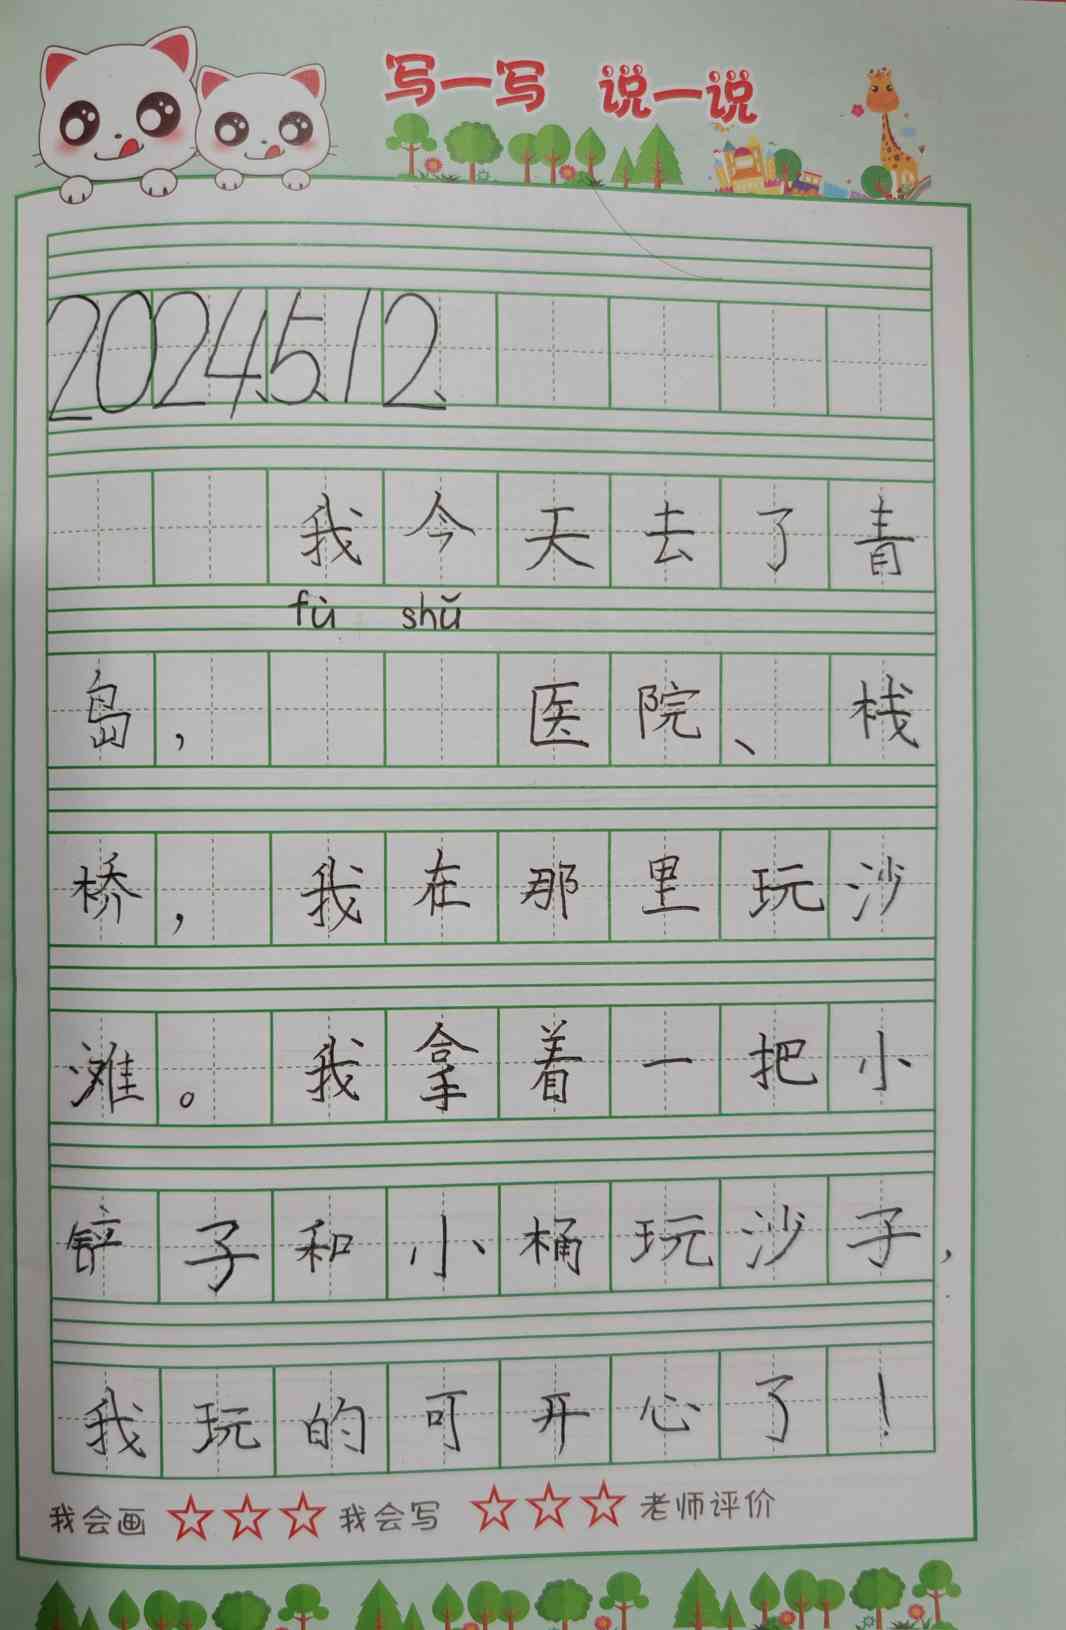 写一写 说一说
2024.5.12.
我今天去了青
fù shǔ
岛，医院、栈
桥，我在那里玩沙
滩。我拿着一把小
铲子和小桶玩沙子，
我玩的可开心了！
我会画 我会写 老师评价